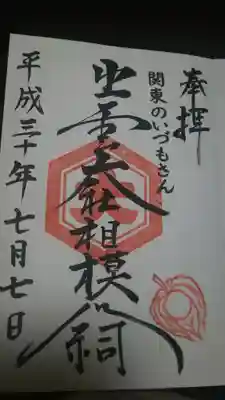 奉拝
関東のいづもさん
出雲大社相模分祠
平成三十年七月七日